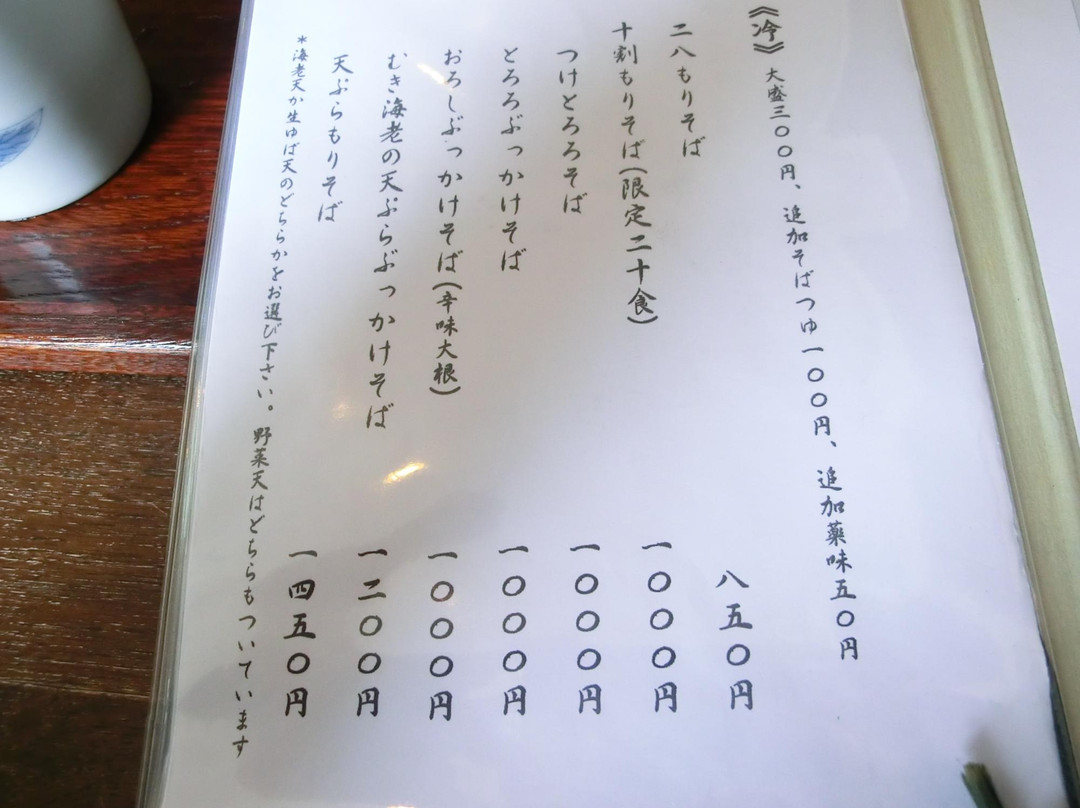 《冷》 大盛三〇〇円、追加そばつゆ一〇〇円、追加薬味五〇円
二八もりそば 八五〇円
十割もりそば(限定二十食) 一〇〇〇円
つけとろろそば 一〇〇〇円
とろろぶっかけそば 一〇〇〇円
おろしぶっかけそば(辛味大根) 一〇〇〇円
むき海老の天ぷらぶっかけそば 一二〇〇円
天ぷらもりそば 一四五〇円
*海老天か生ゆば天のどちらかをお選び下さい。野菜天はどちらもついています